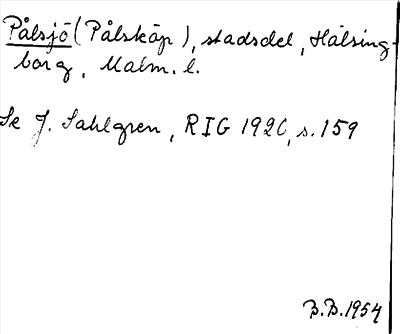 Pålsjö (Pålsköp), stadsdel, Hälsing-
borg, Malm. l.
Se J. Sahlgren, RIG 1920, s. 159
B.B. 1954